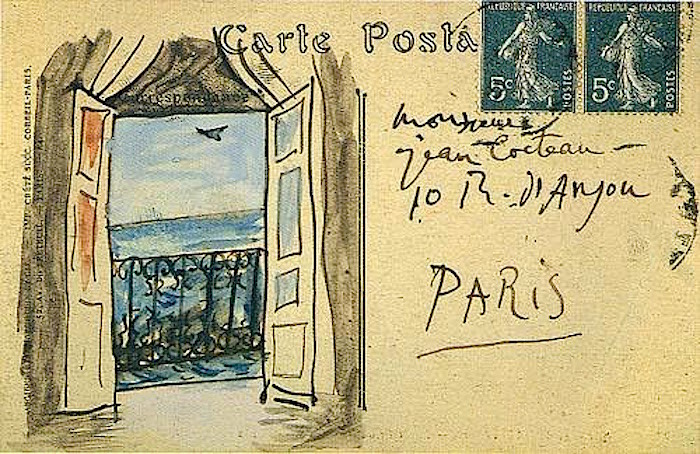 Carte Posta
REPUBLIQUE FRANÇAISE
REPUBLIQUE FRANÇAISE
5c
POSTES
5c
POSTES
Monsieur
Jean Cocteau
10 R. d'Anjou
PARIS
IMP. CRÉTÉ SUCC. CORBEIL-PARIS.